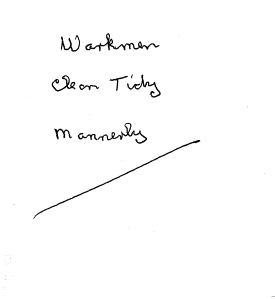 Workmen
Clean Tidy
Mannerly